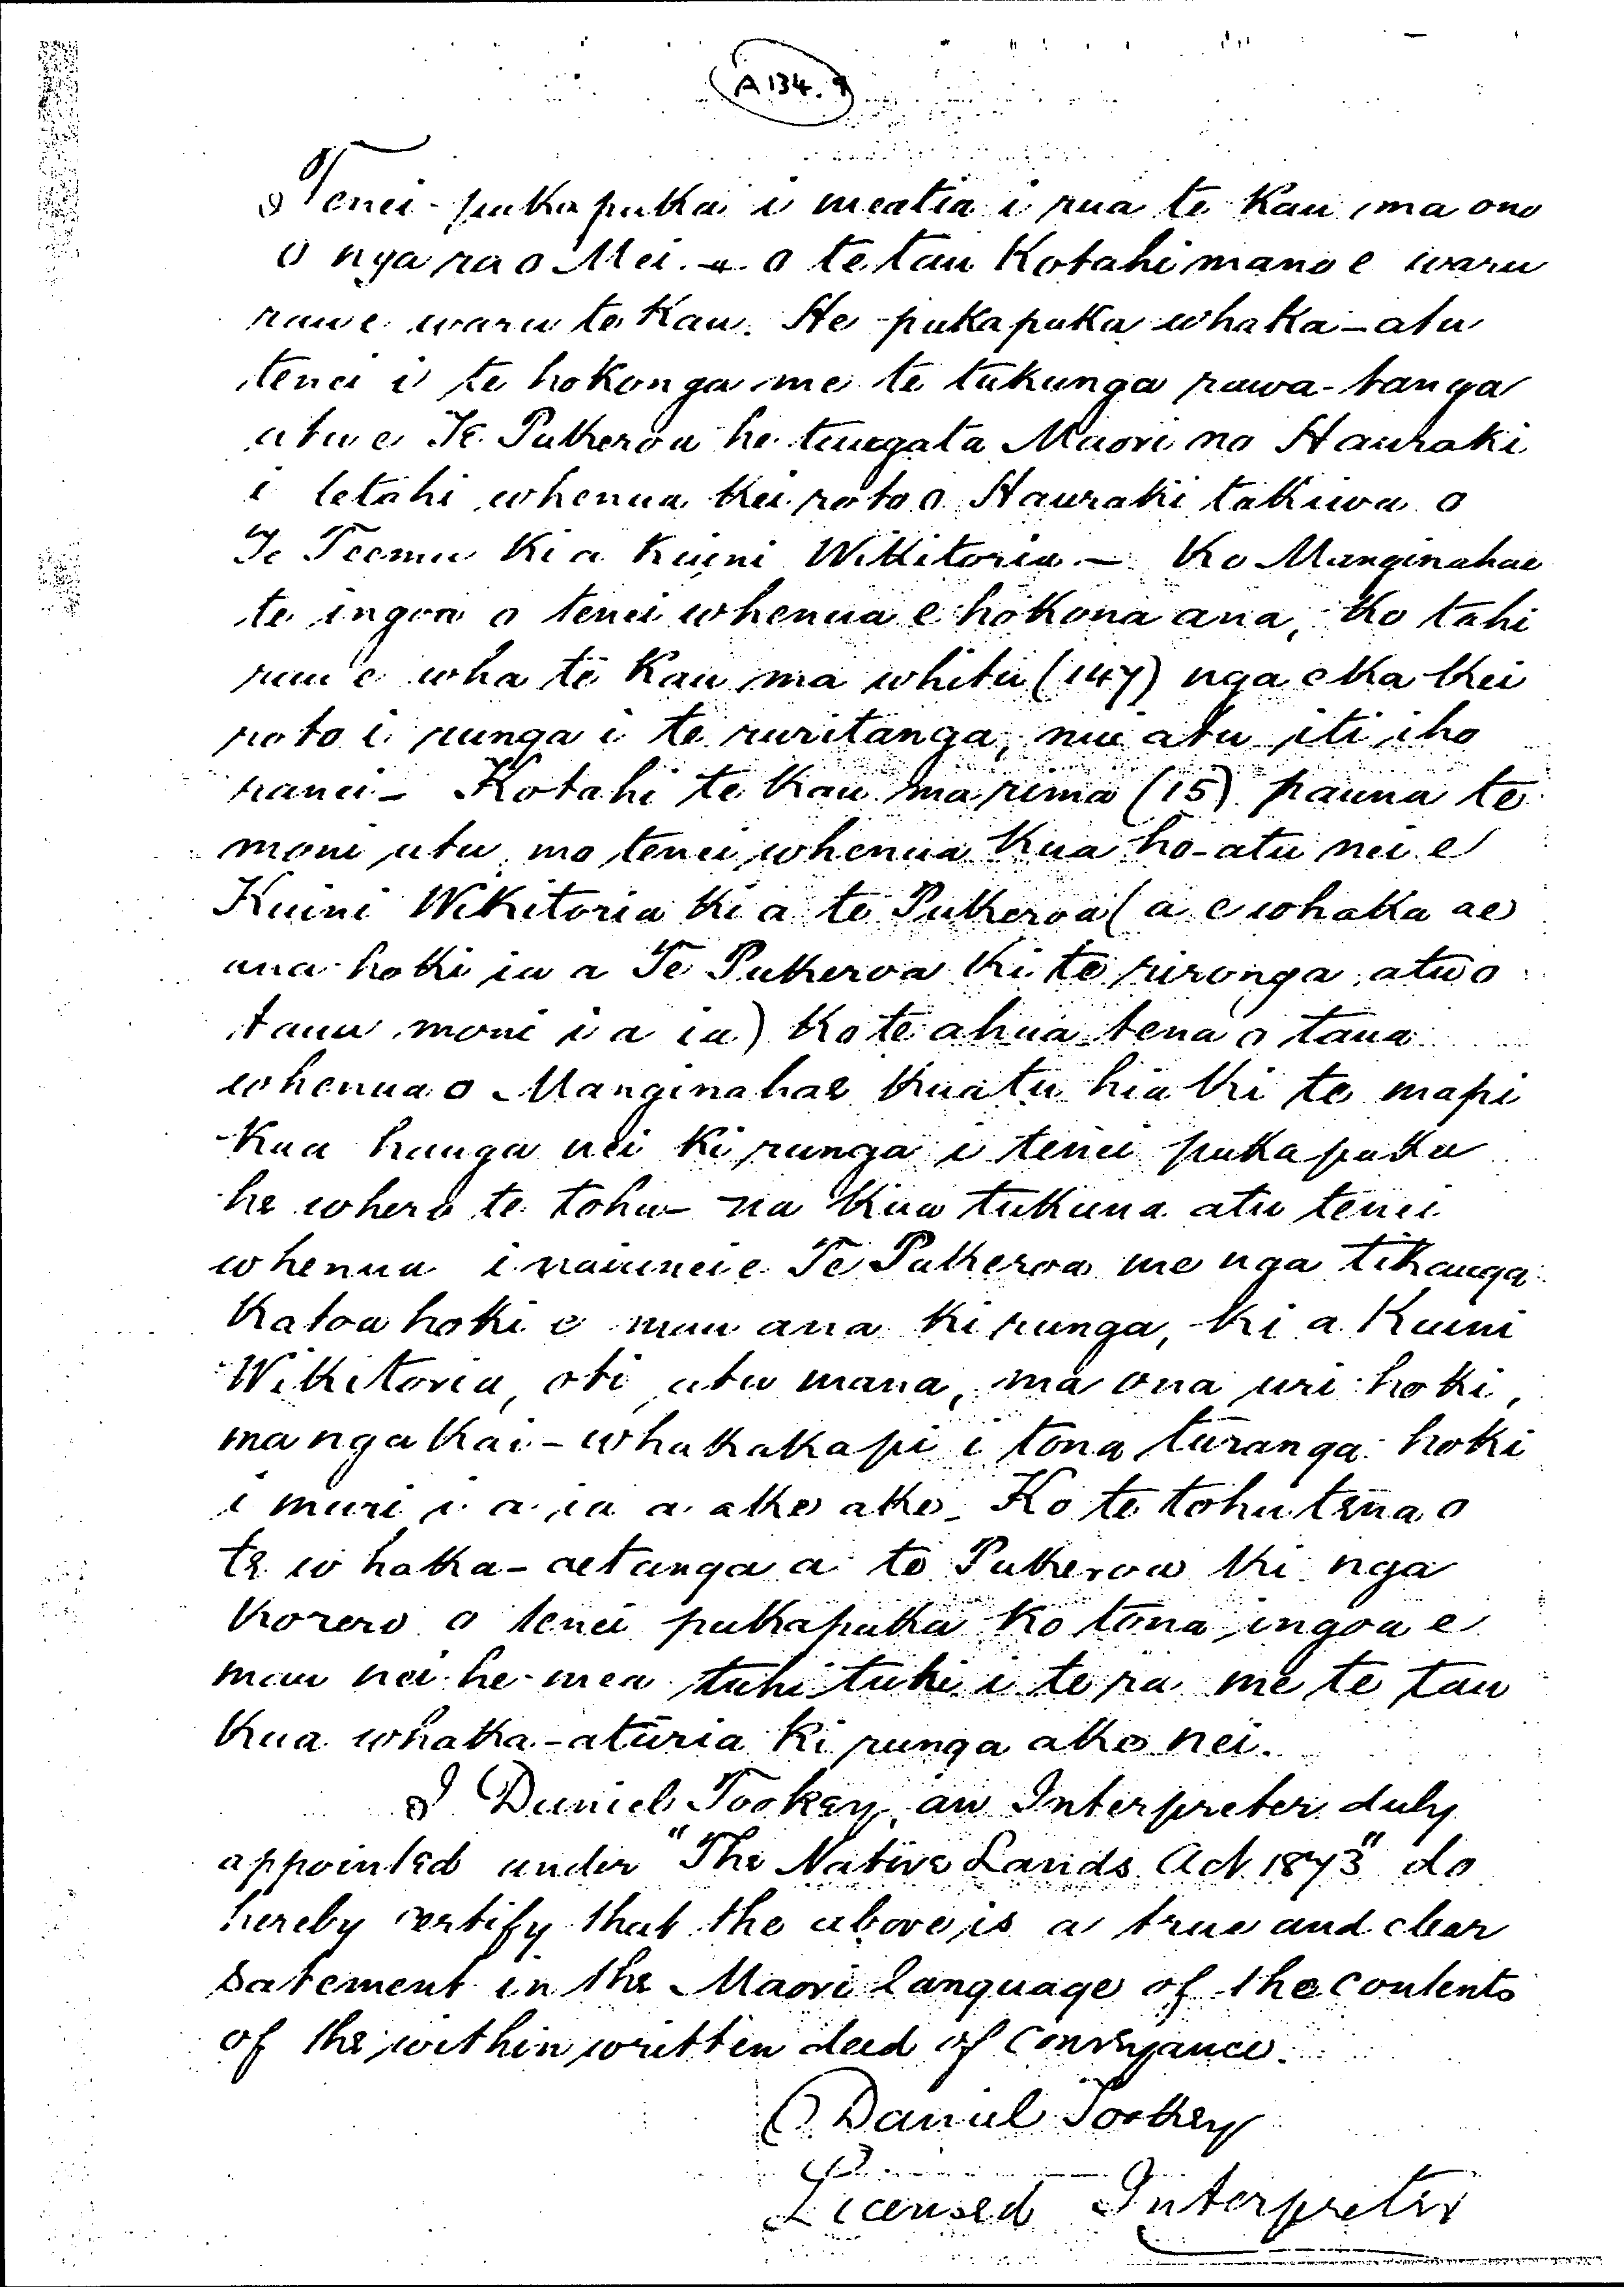 A134.9
Tenei pukapuka i meatia i rua te Kau ma ono
o nga ra o Mei. o te tau Kotahi mano e waru
rau e waru te Kau. He pukapuka whaka-atu
tenei i te hokonga me te tukunga rawa-tanga
atu e Te Pukeroa he tangata Maori no Hauraki
i tetahi whenua kei roto o Hauraki takiwa o
Te Teemu Ki a Kuini Wikitoria - Ko Manginahae
te ingoa o tenei whenua e hokona ana, Ko tahi
rau e wha te Kau ma whitu (147) nga eka kei
roto i runga i te ruritanga, nui atu iti iho
ranei - Kotahi te Kau ma rima (15) pauna te
moni utu mo tenei whenua kua ho-atu nei e
Kuini Wikitoria ki a te Pukeroa (a e whaka ae
ana hoki ia a Te Pukeroa ki te rironga atu o
taua moni i a ia) Ko te ahua tena o taua
whenua o Manginahae kua tu hia ki te mapi
Kua hanga nei Ki runga i tenei pukapuka
he whero te tohu - na kua tukuna atu tenei
whenua i naianei e Te Pukeroa me nga tikanga
Katoa hoki e mau ana ki runga, ki a Kuini
Wikitoria, oti atu mana, ma ona uri hoki,
ma nga Kai-whakakapi i tona turanga hoki
i muri i a ia a ake ake - Ko te tohu tena o
te whaka-aetanga a te Pukeroa ki nga
Korero o tenei pukapuka ko tona ingoa e
mau nei he mea tuhi tuhi i te ra me te tau
Kua whaka-aturia Ki runga ake nei.
I Daniel Tookey, an Interpreter duly
appointed under "The Native Lands Act 1873" do
hereby certify that the above is a true and clear
satement in the Maori language of the contents
of the within written deed of conveyance.
Daniel Tookey
Licensed Interpreter